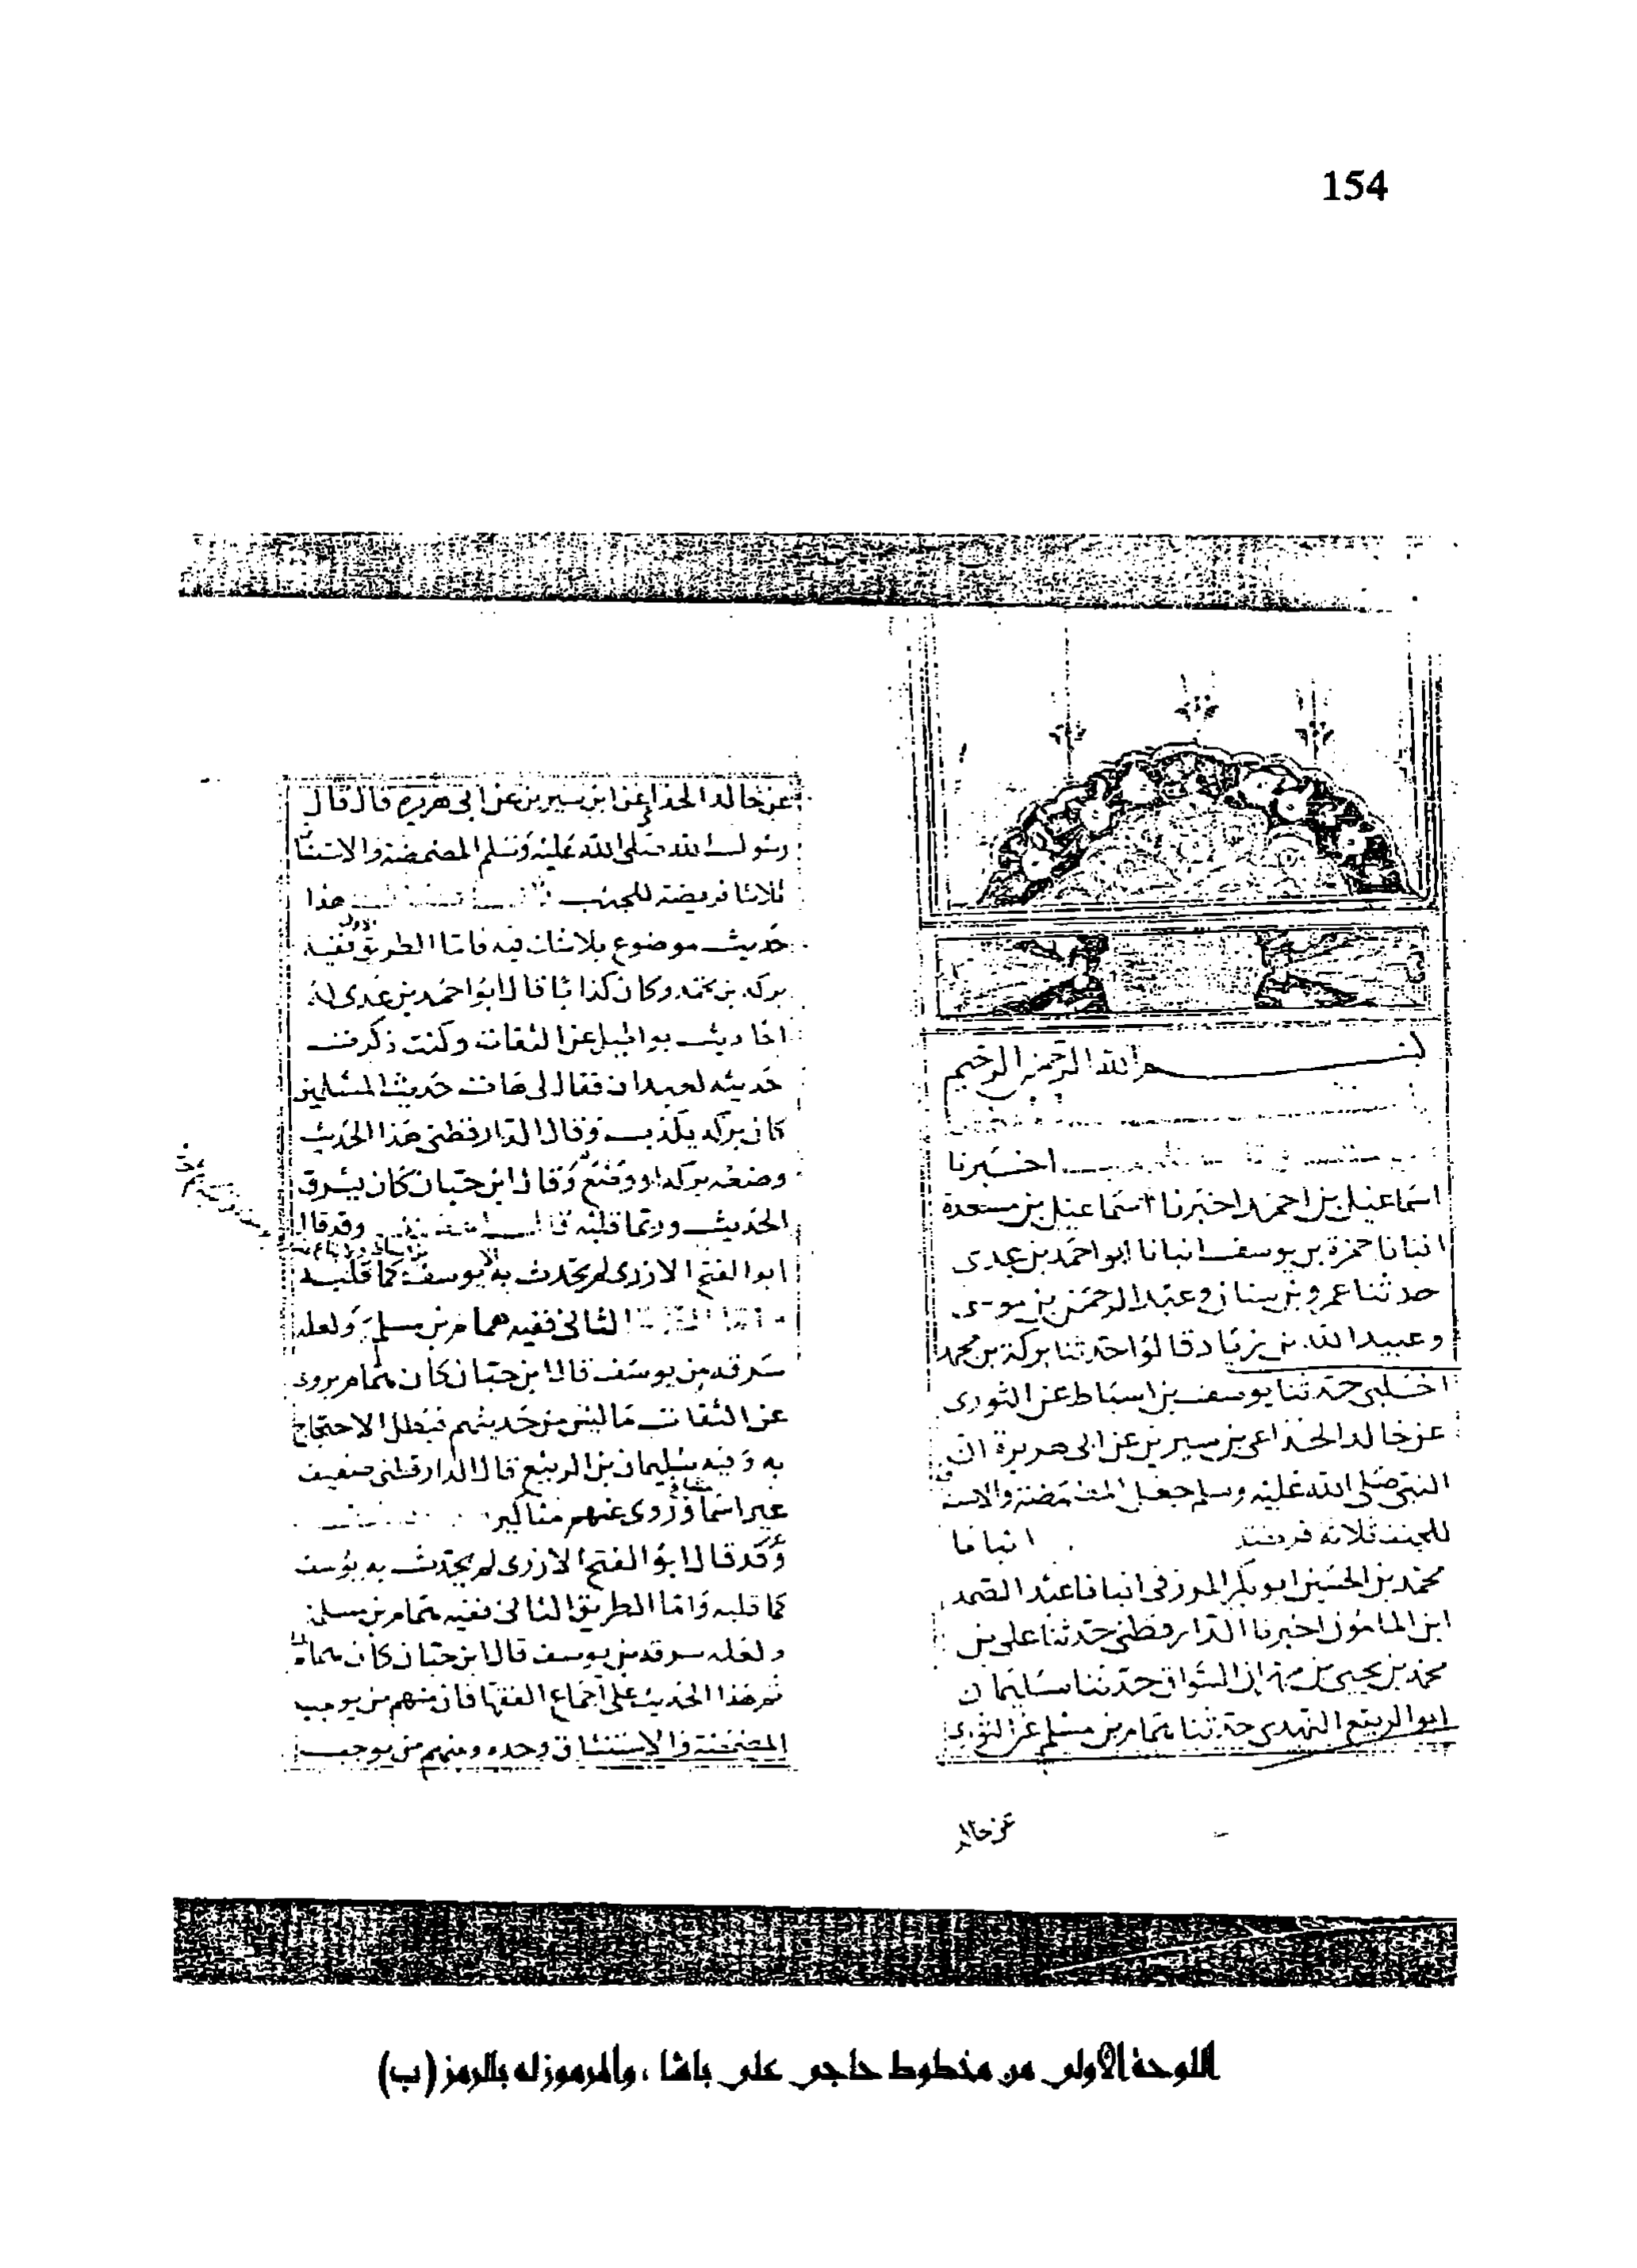 154
بسم الله الرحمن الرحيم
اخبرنا
اسماعيل بن احمد اخبرنا اسماعيل بن مسعدة
انبانا حمزة بن يوسف انبانا ابو احمد بن عدى
حدثنا عمرو بن سنان وعبد الرحمن بن موسى
وعبيد الله بن زياد قالوا حدثنا بركة بن محمد
الحلبى حدثنا يوسف بن اسباط عن الثورى
عن خالد الحذا عن بن سيرين عن ابى هريرة ان
النبى صلى الله عليه وسلم جعل المضمضة والاستنشاق
للجنب ثلاثة فريضة انبانا
محمد بن الحسين ابو بكر المزرفى انبانا عبد الصمد
ابن المامون اخبرنا الدارقطنى حدثنا على بن
محمد بن يحيى بن مهران السواق حدثنا سليمان
ابو الربيع النهدى حدثنا همام بن مسلم عن الثورى
عن خالد
عن خالد الحذا عن ابن سيرين عن ابى هريره قال قال
رسول الله صلى الله عليه وسلم المضمضة والاستنشاق
ثلاثا فريضة للجنب هذا
حديث موضوع بلا شك فيه فاما الطريق الاول ففيه
بركه بن محمد وكان كذابا قال ابو احمد بن عدى له
احاديث بواطيل عن الثقات وكنت ذكرت
حديثه لعبدان فقال لى هات حديث المسلمين
كان بركه يكذب وقال الدارقطنى هذا الحديث
وضعه بركه او وقع وقال ابن حبان كان يسرق
الحديث وربما قلبه وقد قال
ابو الفتح الازدى لم يحدث به الا يوسف كما قلبه
الثانى ففيه همام بن مسلم ولعله
سرقه من يوسف قال ابن حبان كان همام يروى
عن الثقات ما ليس من حديثهم فبطل الاحتجاج
به وفيه سليمان بن الربيع قال الدارقطنى ضعيف
غير اسما مشايخ وروى عنهم مناكير
وقد قال ابو الفتح الازدى لم يحدث به يوسف
كما قلبه واما الطريق الثانى ففيه همام بن مسلم
ولعله سرقه من يوسف قال ابن حبان كان همام
ثم هذا الحديث على اجماع الفقها فان منهم من يوجب
المضمضة والاستنشاق وحده ومنهم من يوجب
اللوحة الأولى من مخطوط حاجي علي باشا ، والمرموز له بالرمز (ب)